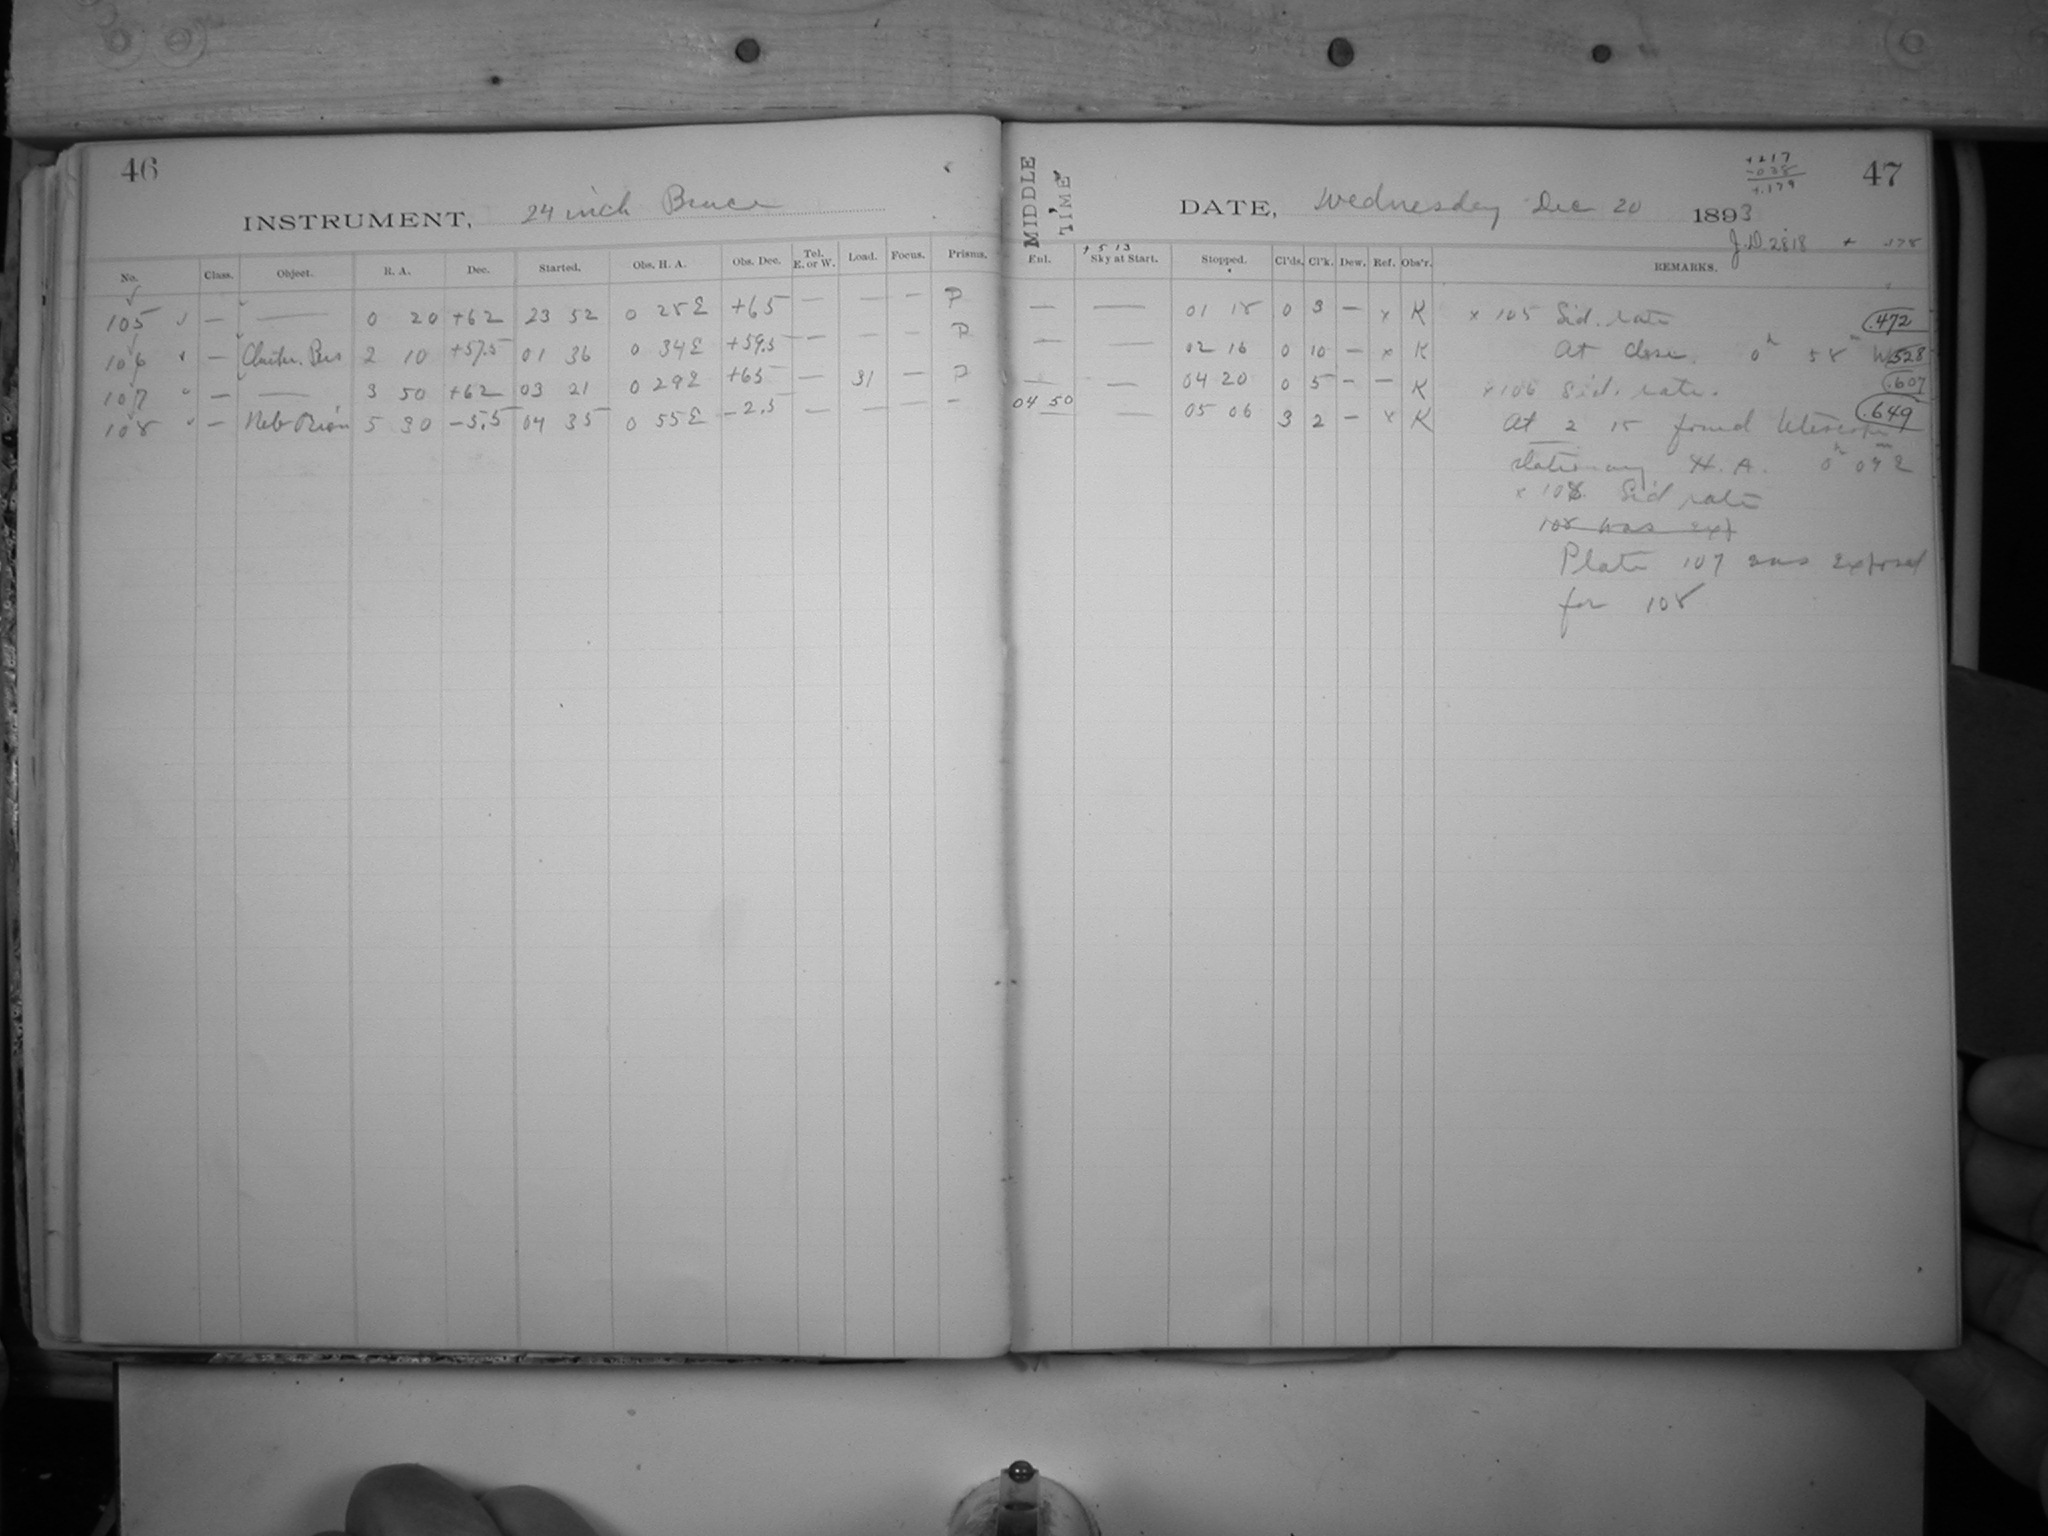 46
INSTRUMENT, 24 inch Bruce
No. Class. Object. R. A. Dec. Started. Obs. H. A. Obs. Dec. Tel. E. or W. Load. Focus. Prisms.
105 — — 0 20 +62 23 52 0 28 E +65 — — — P
106 — Cluster. Pers 2 10 +57.5 01 36 0 34 E +59.5 — — — P
107 — — 3 50 +62 03 21 0 29 E +65 — 31 — P
108 — Neb Orion 5 30 −5.5 04 35 0 55 E −2.5 — — — —
MIDDLE TIME
DATE, Wednesday Dec 20 1893
47
+217
-038
+.179
J.D. 2818 + .178
+ 5 13
Enl. Sky at Start. Stopped. Cl'ds. Cl'k. Dew. Ref. Obs'r. REMARKS.
— — 01 18 0 3 — x K x 105 Sid. rate .472
— — 02 16 0 10 — x K At close. 0h 58m W .528
— — 04 20 0 5 — — K x 106 Sid. rate. .607
04 50 — 05 06 3 2 — x K At 2 15 found telescope .649
stationary H. A. 0h 09m E
x 108. Sid rate
108 was exp
Plate 107 was exposed
for 108